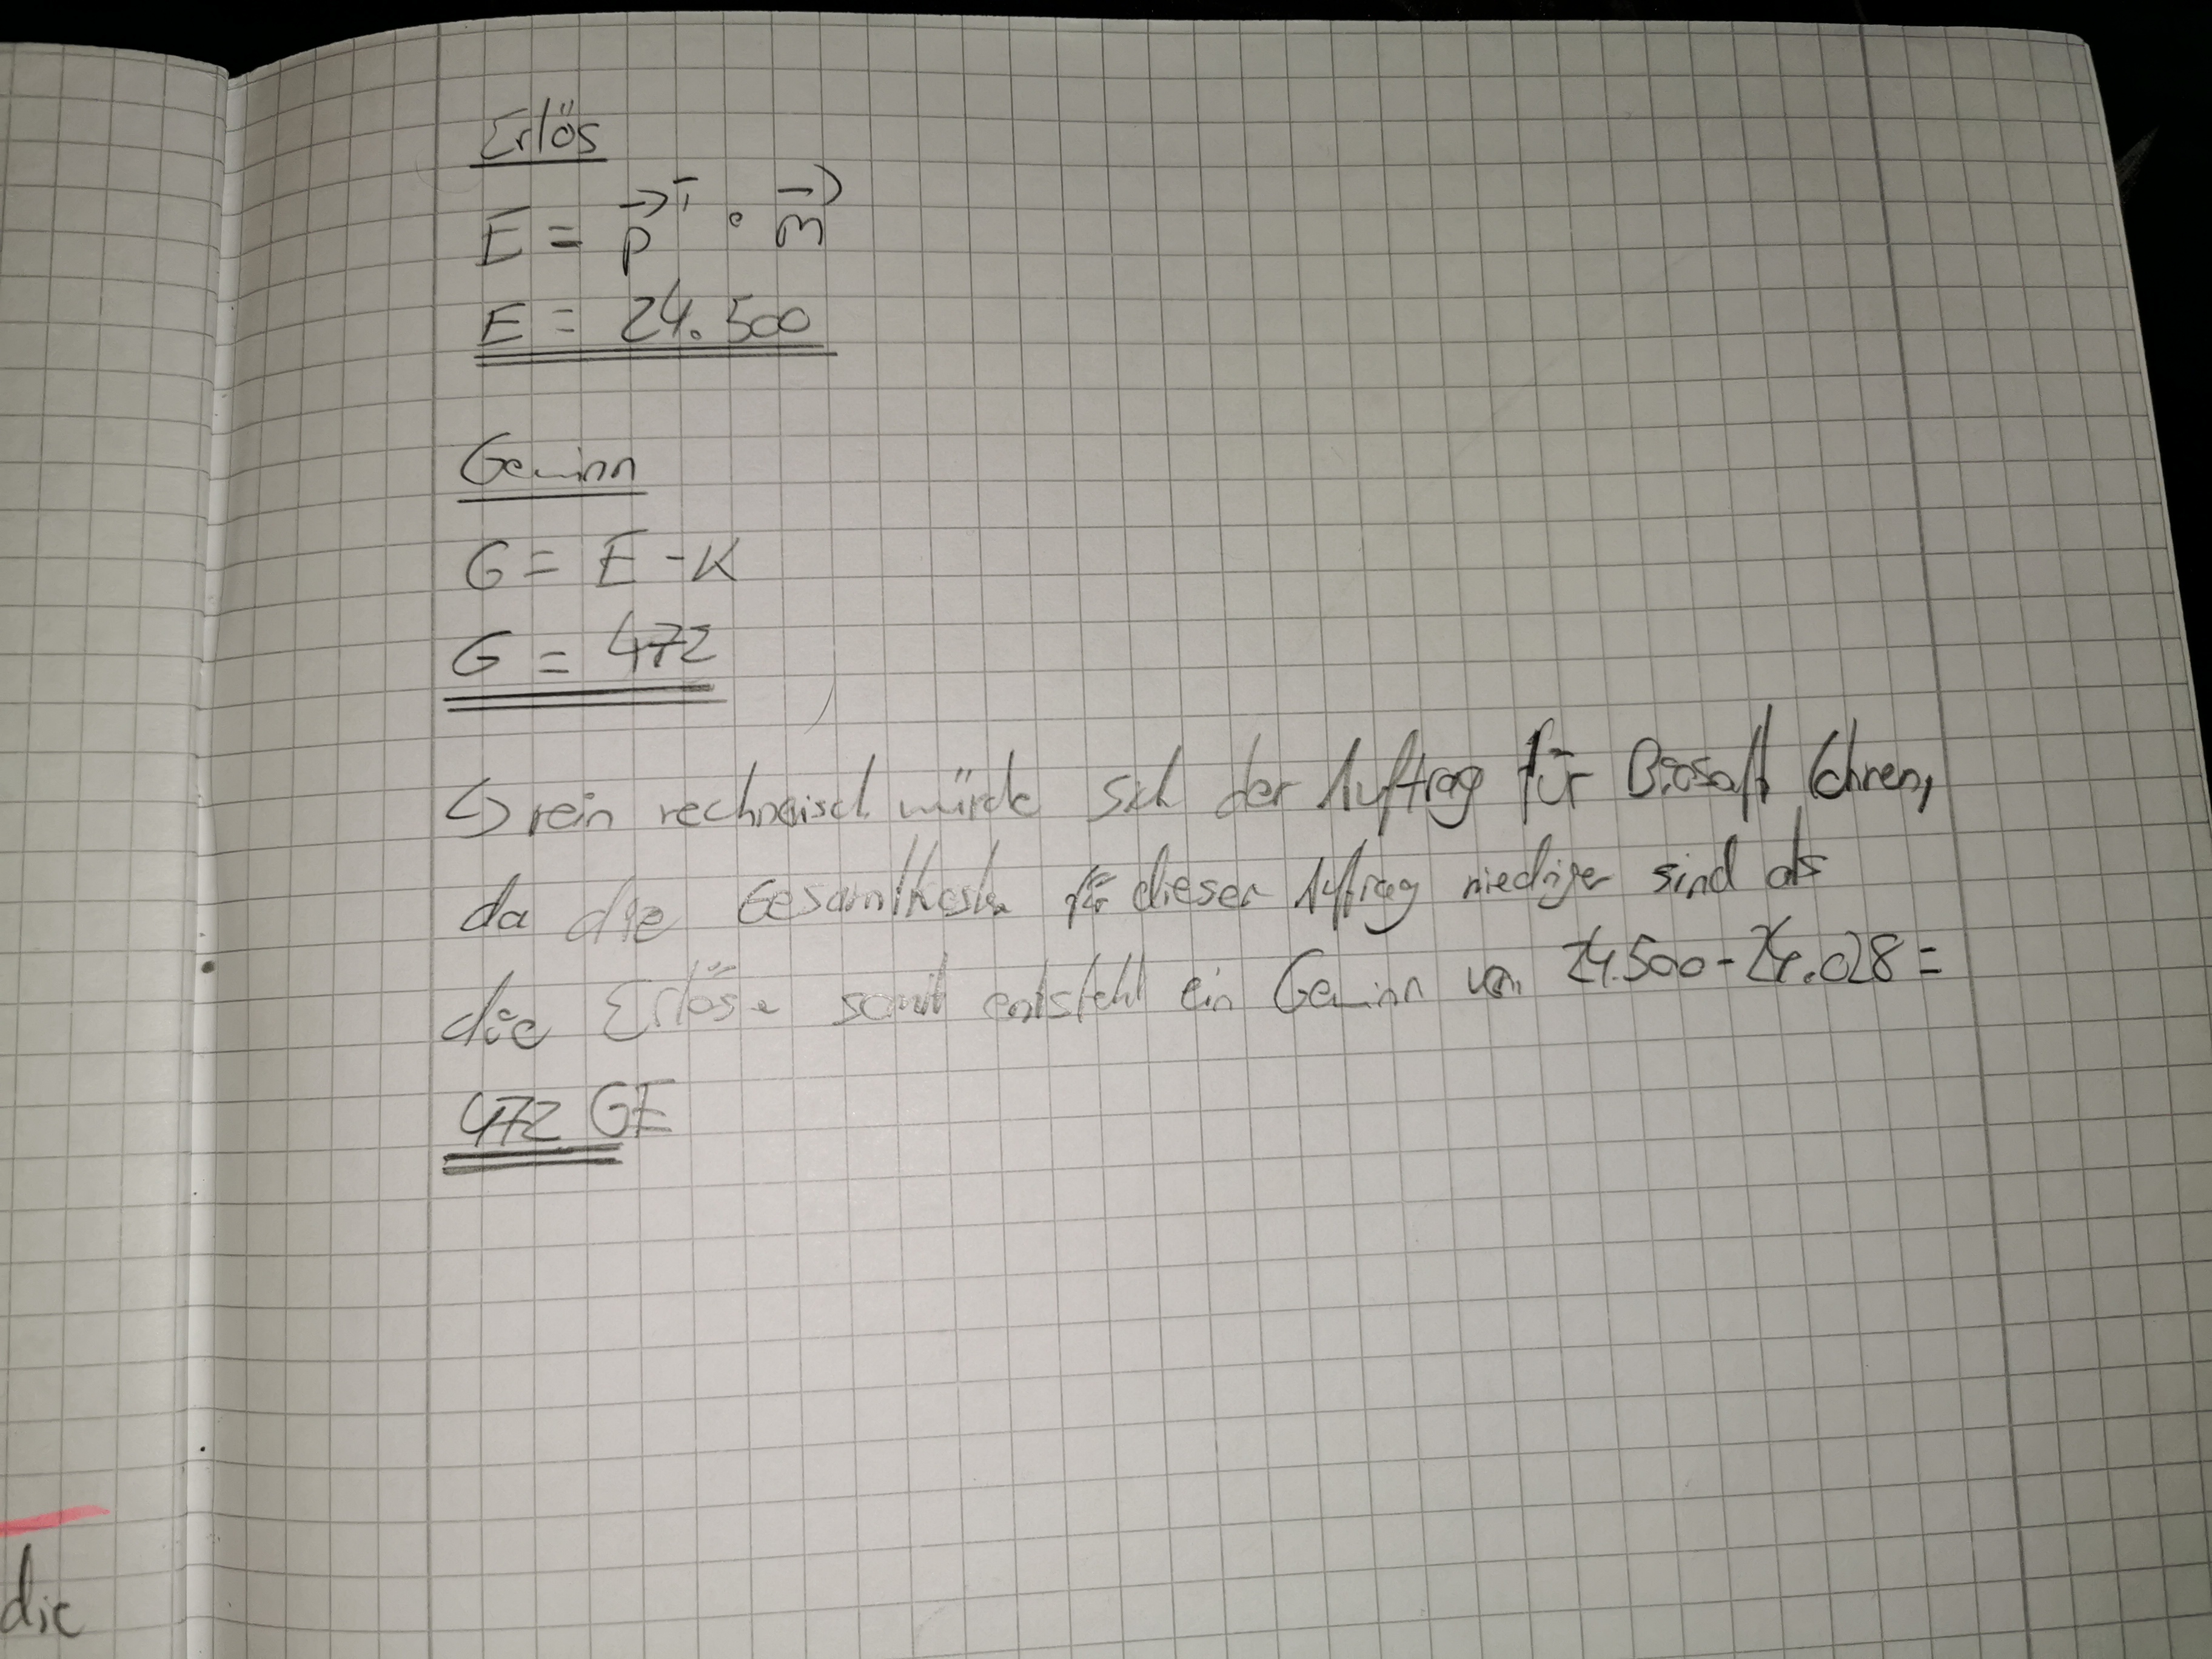 Erlös
E = p⃗ᵀ · m⃗
E = 24.500
Gewinn
G = E - K
G = 472
↳ rein rechnerisch würde sich der Auftrag für Biosaft lohnen,
da die Gesamtkosten für diesen Auftrag niedriger sind als
die Erlöse somit entsteht ein Gewinn von 24.500 - 24.028 =
472 GE
die